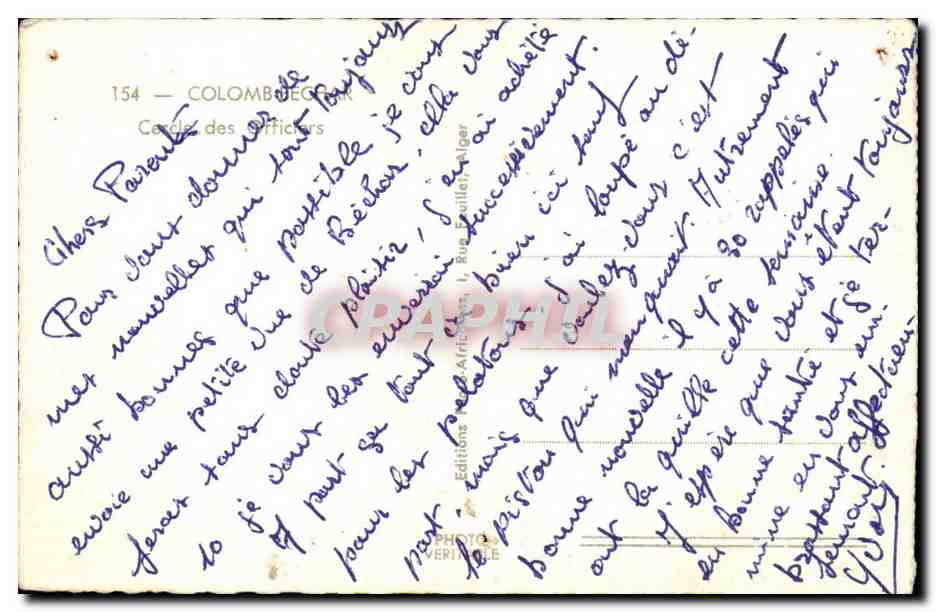 154 — COLOMB-BECHAR
Cercle des Officiers
Chers Parents
Pour vous donner de
mes nouvelles qui sont toujours
aussi bonnes que possible je vous
envoie une petite vue de Béchar, elle vous
feras sans doute plaisir, j'en ai achété
10 je vous les enverrai successivement.
A part ça tout va bien ici sauf
pour les pelotons j'ai loupé au dé-
part, mais que voulez vous c'est
le piston qui manquait. Autrement
bonne nouvelle il y à 30 rappelés qui
ont la quille cette semaine.
J'espère que vous étent toujours
en bonne santé et je ter-
mine en vous em-
brassant affectueu-
sement.
Yvon
Editions Photo-Africaines, 1, Rue Feuillet, Alger
PHOTO
VERITABLE
CPAPHIL